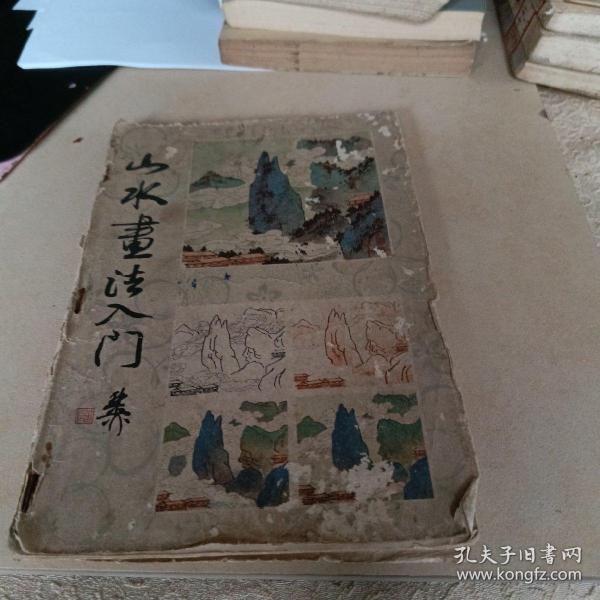 山水畫法入门
孔夫子旧書网
www.kongfz.com